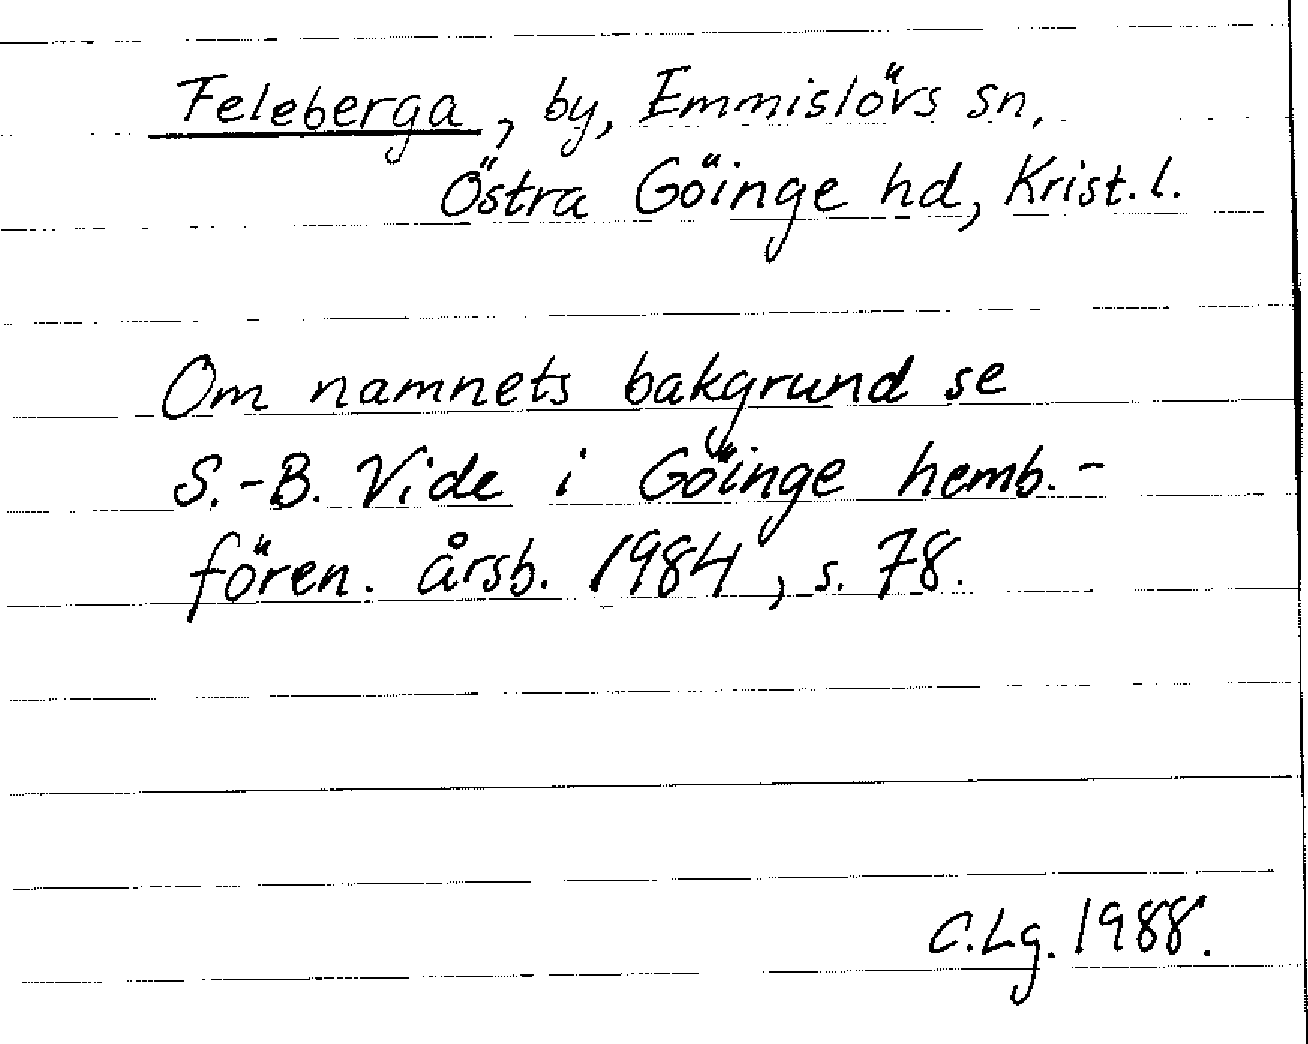 Feleberga, by, Emmislövs sn,
Östra Göinge hd, Krist. l.
Om namnets bakgrund se
S.-B. Vide i Göinge hemb.-
fören. årsb. 1984, s. 78.
C.Lg. 1988.